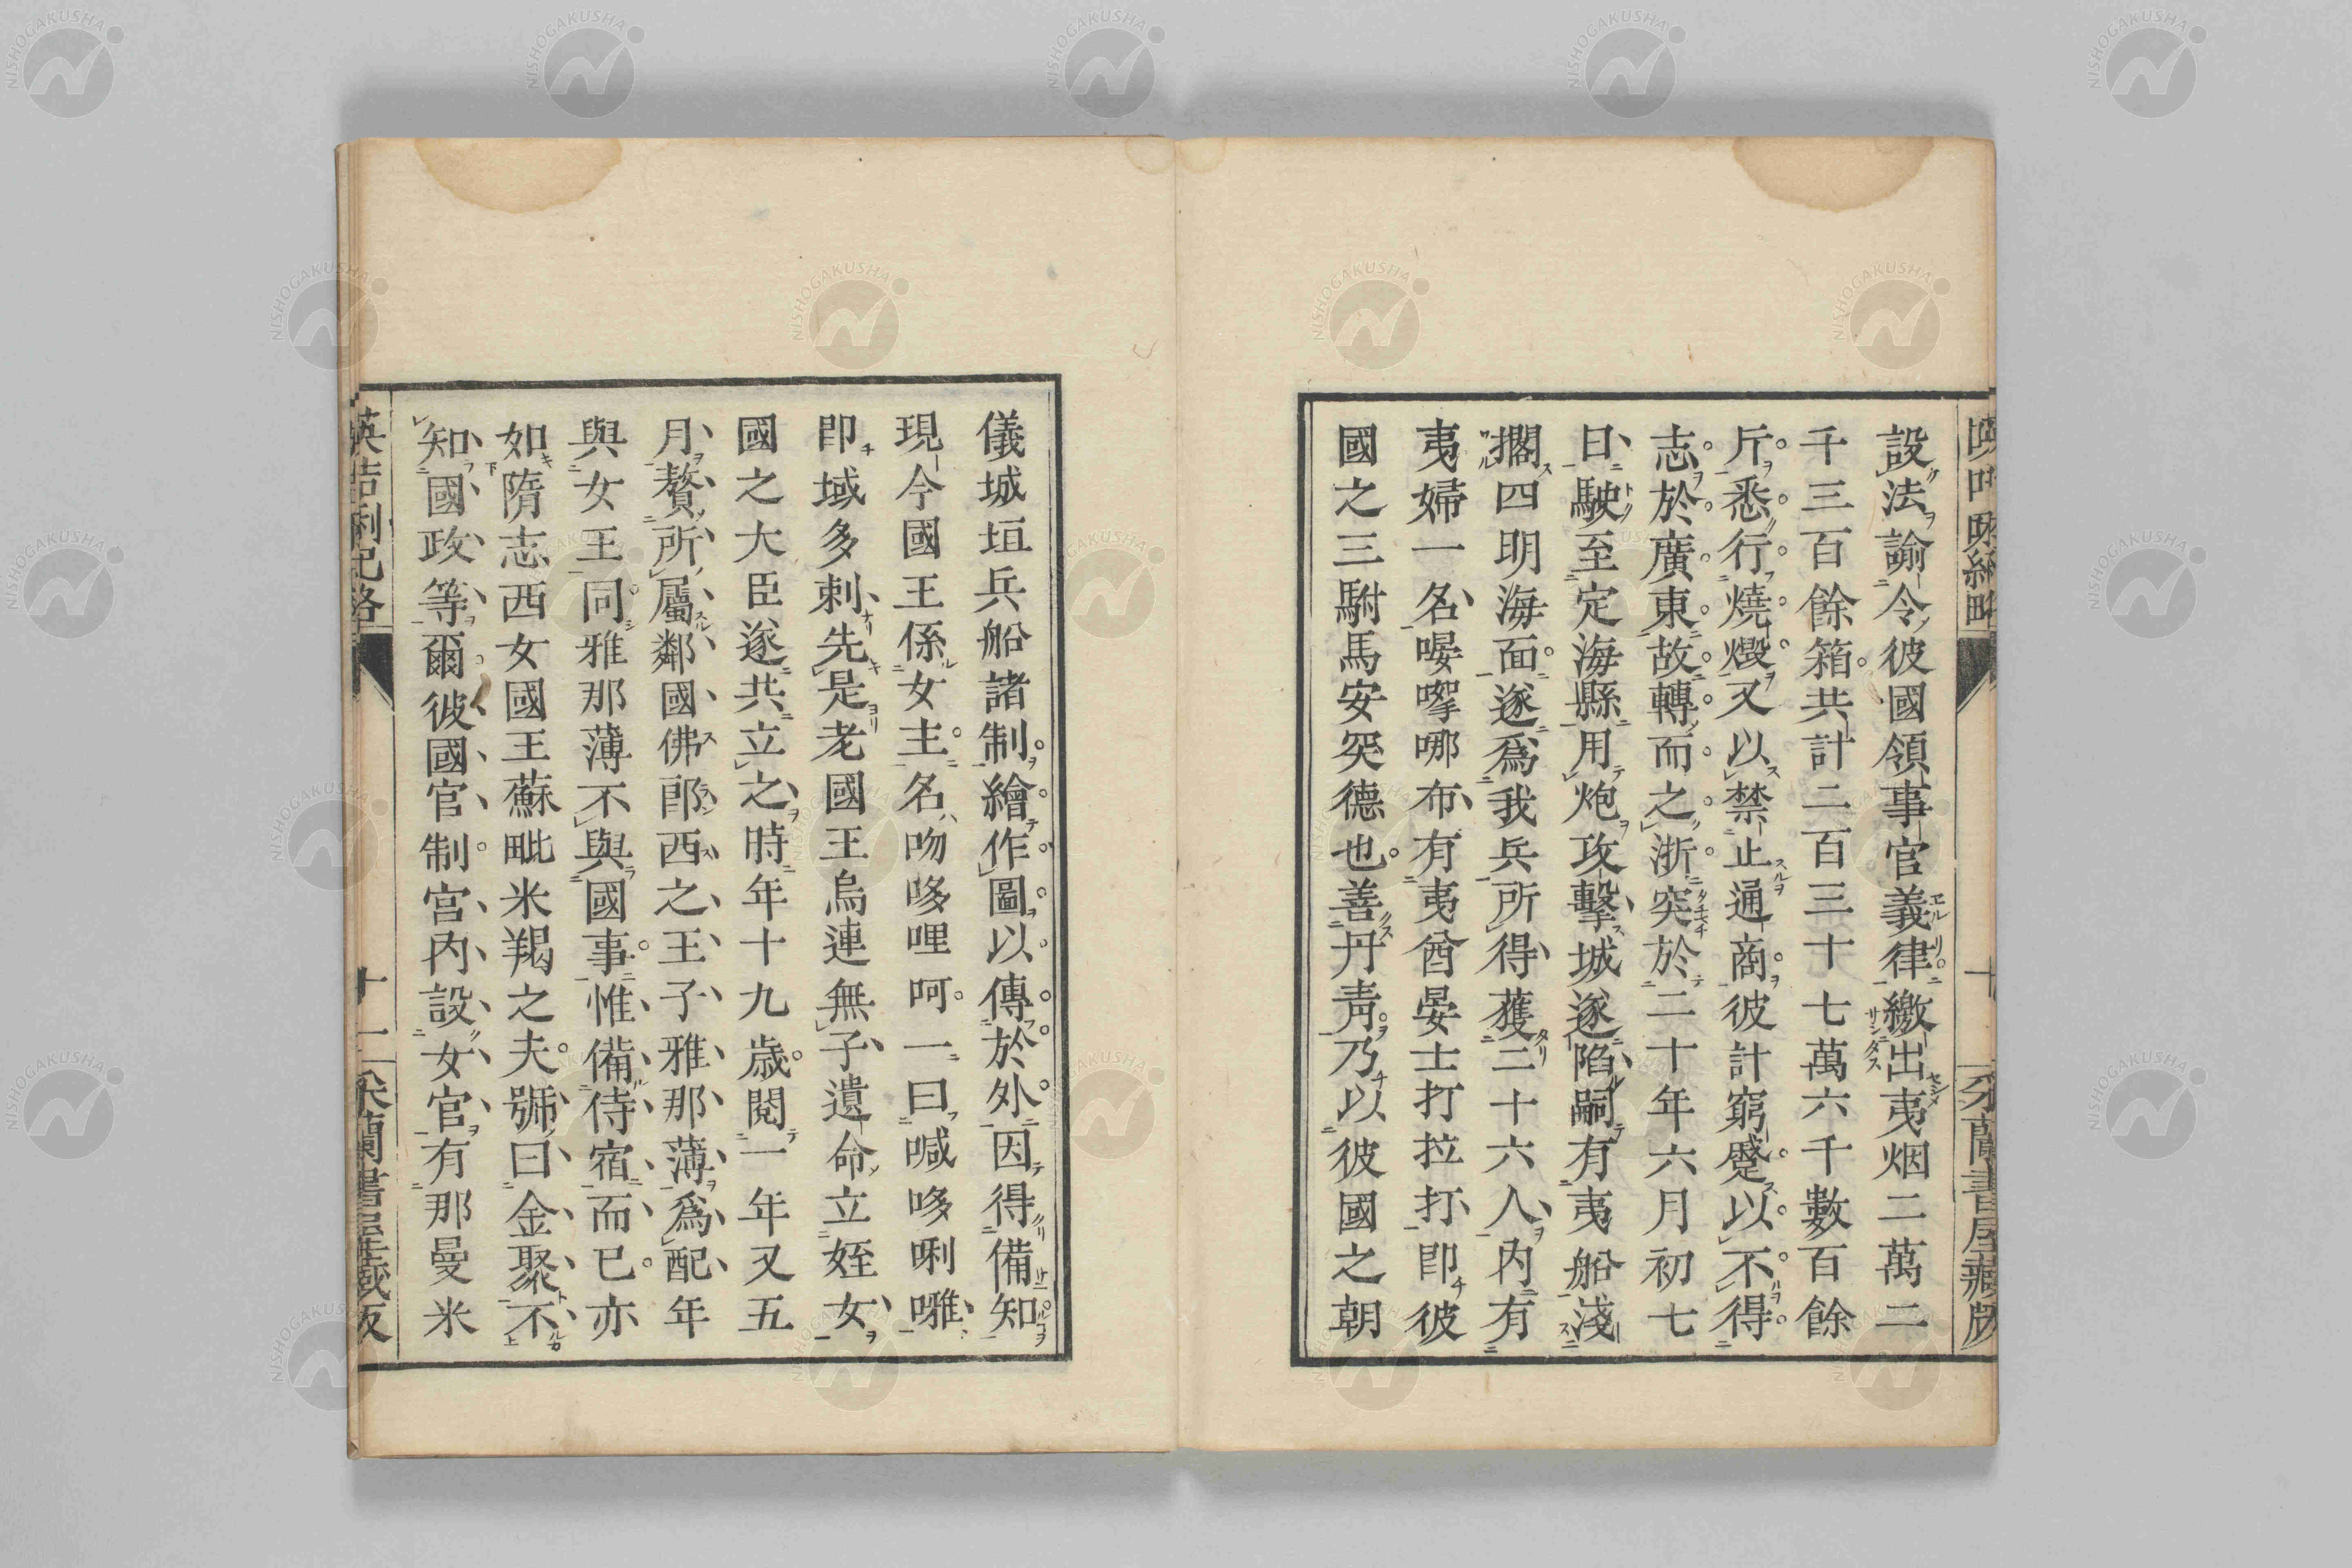 設法諭令彼國領事官義律繳出夷烟二萬二
千三百餘箱共計二百三十七萬六千數百餘
斤悉行燒燬又以禁止通商彼計窮蹙以不得
志於廣東故轉而之浙突於二十年六月初七
日駛至定海縣用炮攻擊城遂陷嗣有夷船淺
擱四明海面遂爲我兵所得獲二十六人內有
夷婦一名㗷哪布有夷酋晏士打拉打卽彼
國之三駙馬安突德也善丹靑乃以彼國之朝
儀城垣兵船諸制繪作圖以傳於外因得備知
現今國王係女主名吻哆哩呵一曰喊哆唎囃
卽域多剌先是老國王烏連無子遺命立姪女
國之大臣遂共立之時年十九歳閱一年又五
月贅所屬鄰國佛郎西之王子雅那薄爲配年
與女王同雅那薄不與國事惟備侍宿而已亦
如隋志西女國王蘇毗米羯之夫號曰金聚不
知國政等爾彼國官制宮內設女官有那曼米
英吉利記略
十一
蘭書屋藏板
十
蘭書屋藏版
NISHOGAKUSHA